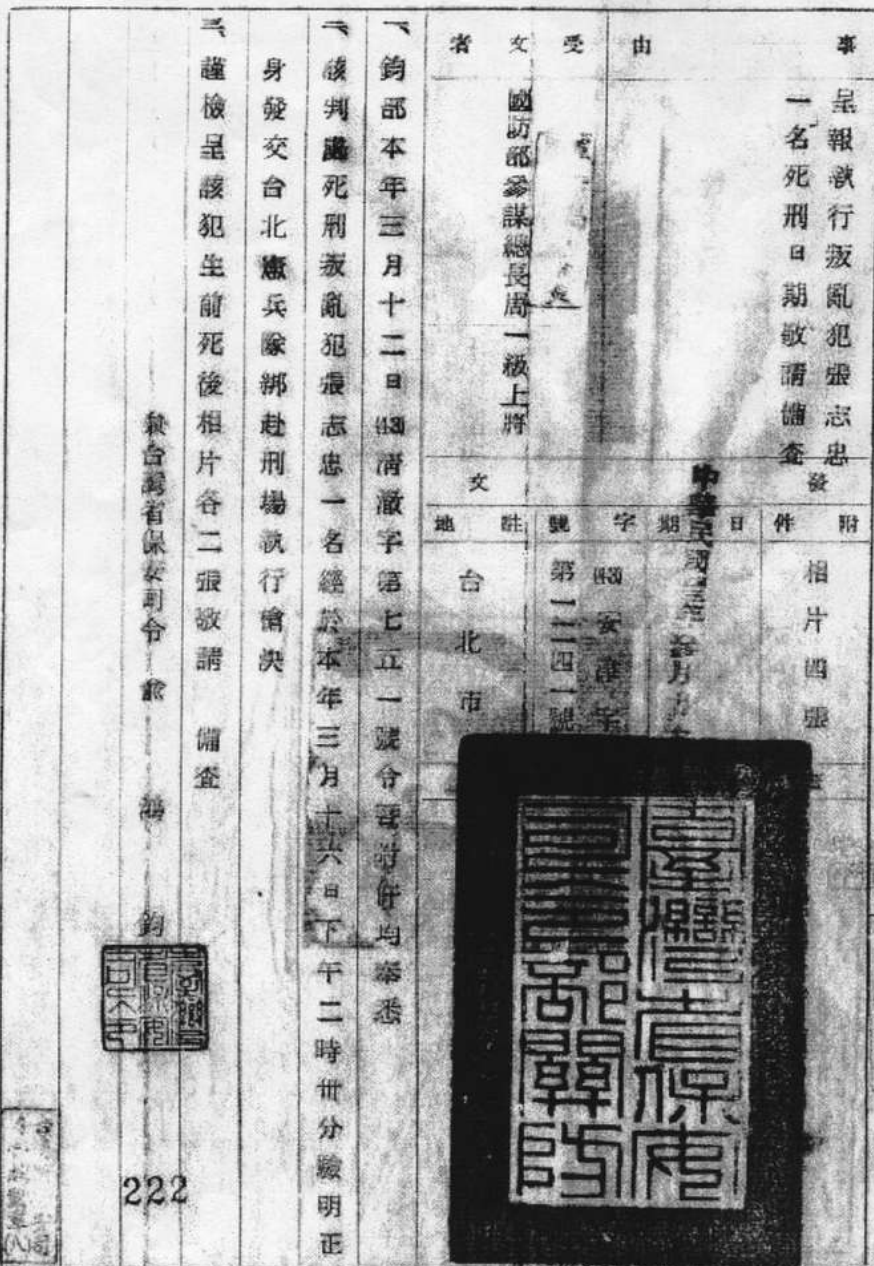 事由
呈報執行叛亂犯張志忠
一名死刑日期敬請備查
受文者
國防部參謀總長周一級上將
發文
附件
相片四張
日期
中華民國
字號
第一二四一號
駐地
台北市
一、鈞部本年三月十二日(43)清澈字第七五一號令暨附件均奉悉
二、該判處死刑叛亂犯張志忠一名經於本年三月十六日下午二時卅分驗明正
身發交台北憲兵隊綁赴刑場執行槍決
三、謹檢呈該犯生前死後相片各二張敬請 備查
兼台灣省保安司令 俞鴻鈞
臺灣省保安
司令部關防
222